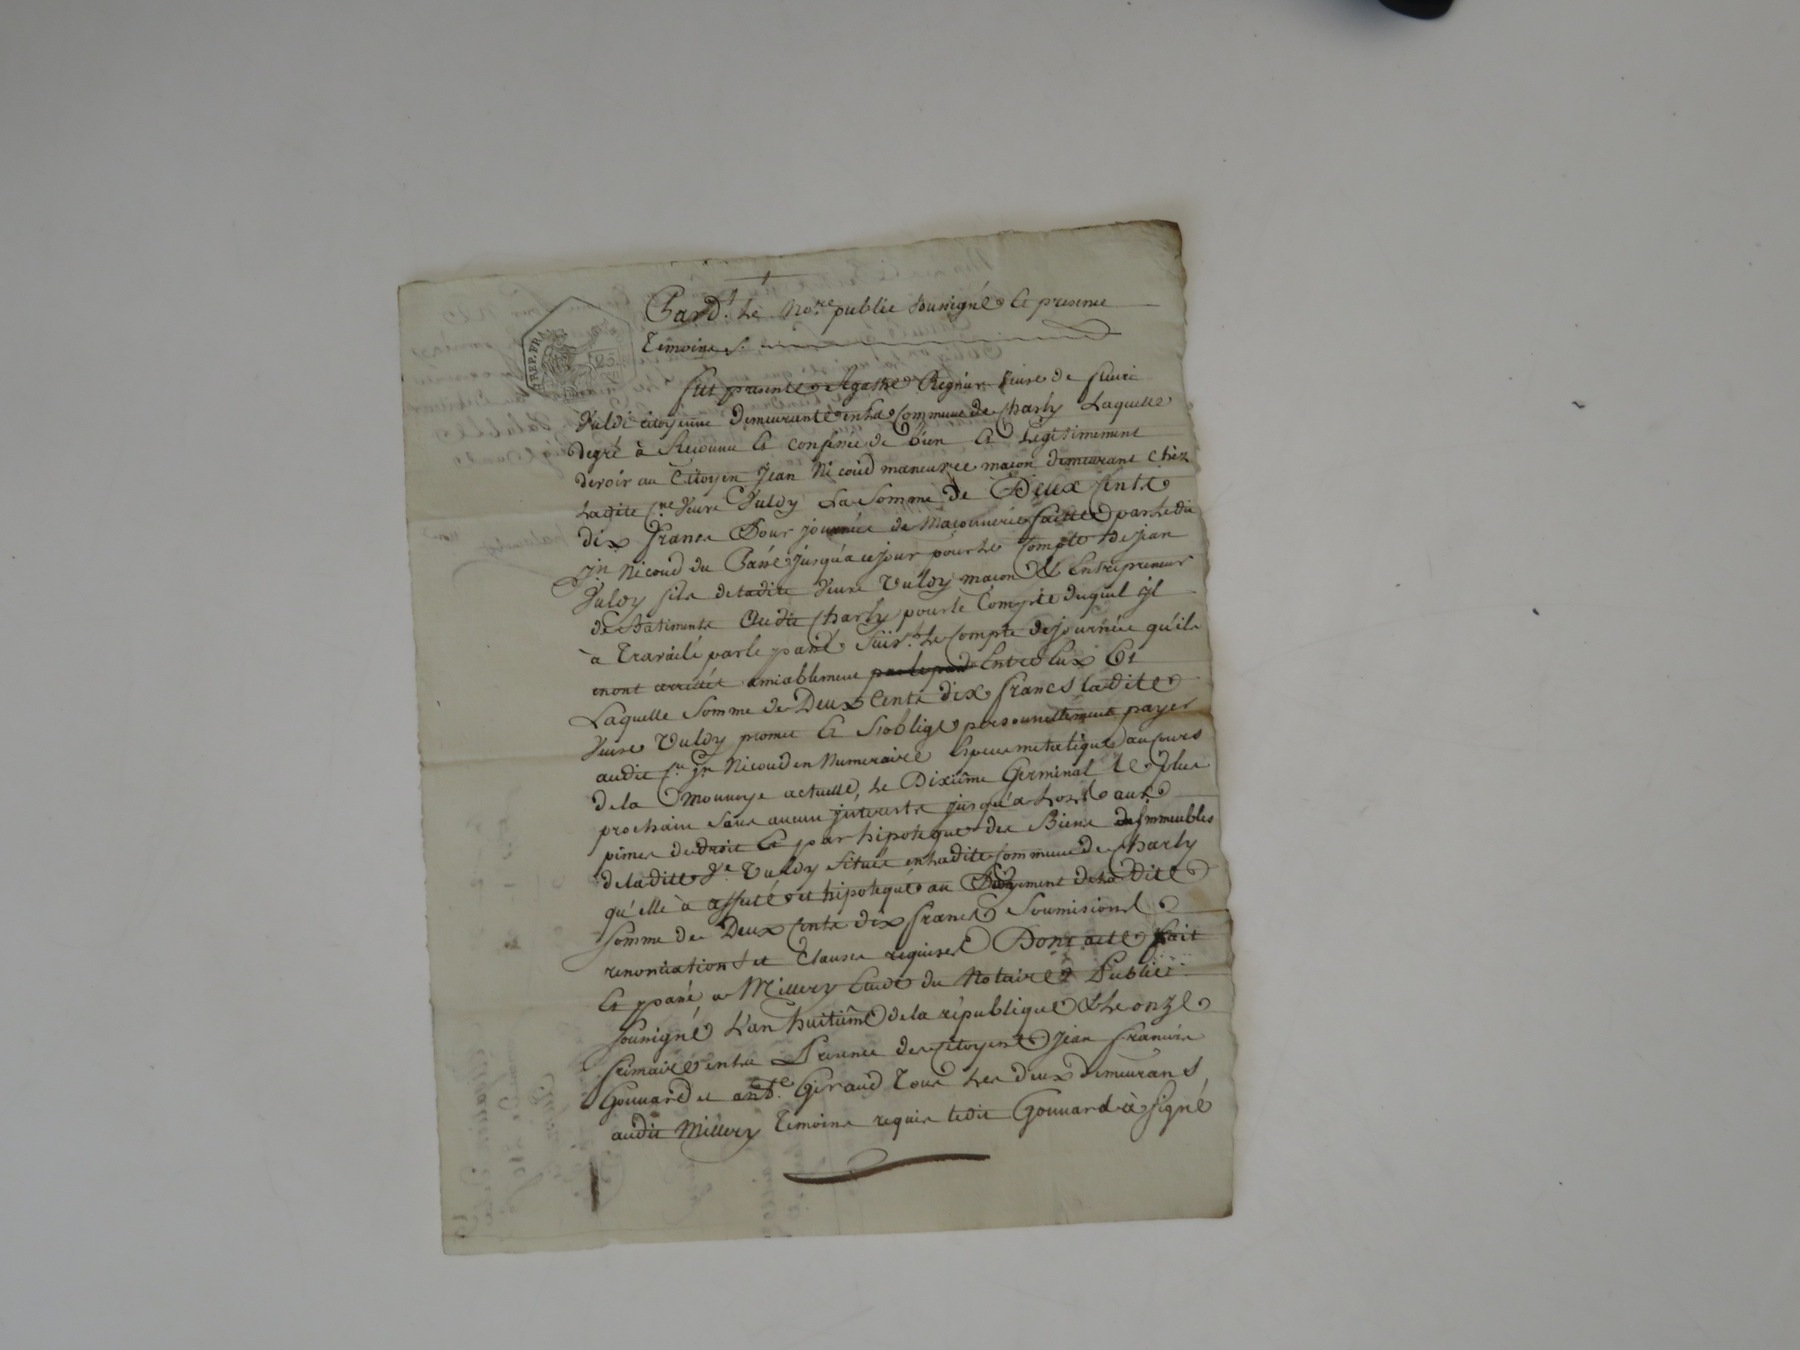 Pard.t Le No.re public soussigné & presence
temoins.
REP. FRA.
25
fut presente Agathe Regnier veuve de fleuri
Vuldi citoyenne demeurante en la commune de Charly Laquelle
degré à Reconnu & confessé de bien & Legitimement
devoir au Citoyen Jean Nicoud maneuvre macon demeurant chéz
Ladite C.ne veuve Vuldy La Somme de Deux Cents
dix francs Pour journées de Maconnerie faittes par Le dit
Jn Nicoud du Passé jusqu'a ce jour pour Le Compte De jean
Vuldy fils de ladite veuve Vuldy macon & Entrepreneur
de Batiments Audit Charly pour le Compte duquel ijl
à travailé par le passé suiv.t Le Compte de journée qu'ils
en ont arretés amiablement par le passé Entre Eux Et
Laquelle Somme de Deux Cents dix francs ladite
veuve Vuldy promet & S'oblige personnellement payer
audit C.n Jn Nicoud en Numeraire Espece metalique au Cours
de la Monnoye actuelle, Le Dixiéme Germinal Le plus
prochain Sans aucun jnterests jusqu'a Lors aux
peines de droit Et par hipoteque des Biens Immeubles
de la ditte V.e Vuldy Situés en Ladite Commune de Charly
qu'elle à affecté et hipotequé au Payement de La Dite
Somme de Deux Cents dix francs Soumisions
renonciations et Clauses requises Dont acte fait
Et passé a Millery Etude du Notaire Public
Soussigné L'an huitiéme de la république & Le onze
frimaire en La Presence des Citoyens Jean Francois
Gouvard et ant.e Giraud Tous Les deux Demeurans
audit Millery Temoins requis ledit Gouvard à Signé